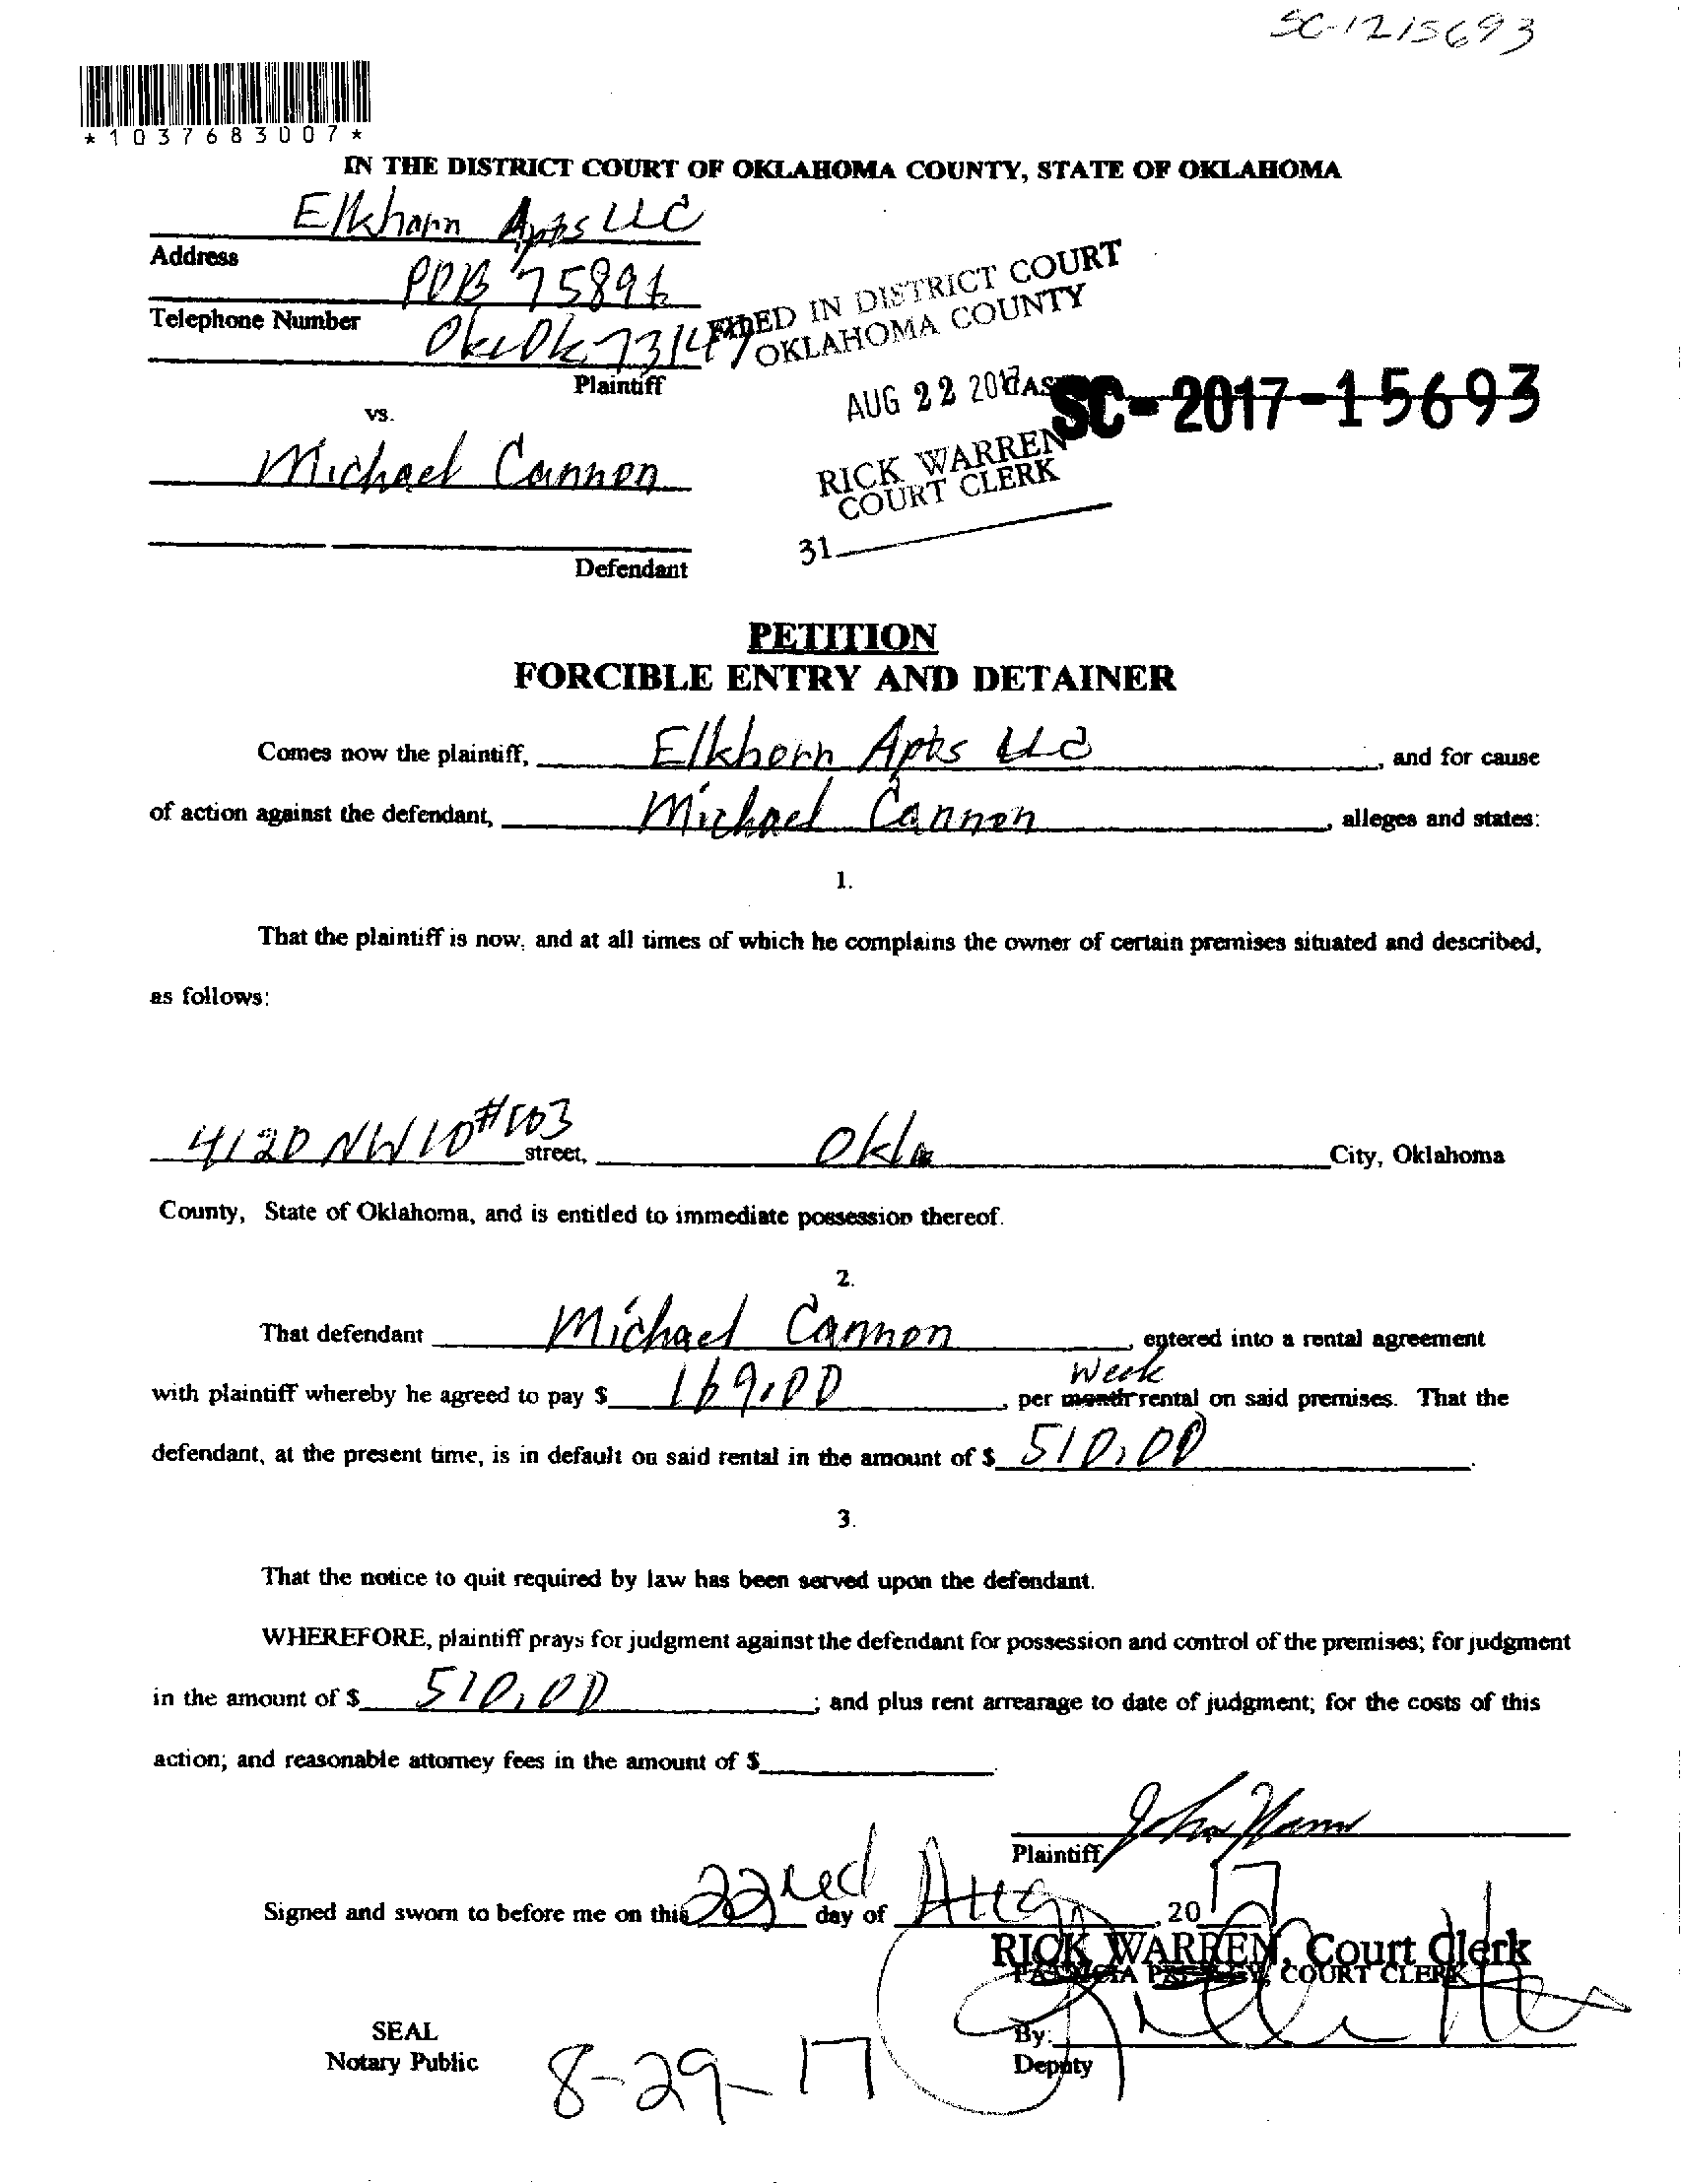 SC-1215693
*1037683007*
IN THE DISTRICT COURT OF OKLAHOMA COUNTY, STATE OF OKLAHOMA
Elkhorn Apts LLC
Address
POB 75891
Telephone Number
OkcOk 73147
Plaintiff
FILED IN DISTRICT COURT
OKLAHOMA COUNTY
AUG 22 2017
SC-2017-15693
RICK WARREN
COURT CLERK
31
vs.
Michael Cannon
Defendant
PETITION
FORCIBLE ENTRY AND DETAINER
Comes now the plaintiff, Elkhorn Apts LLC, and for cause
of action against the defendant, Michael Cannon, alleges and states:
1.
That the plaintiff is now, and at all times of which he complains the owner of certain premises situated and described,
as follows:
4120 NW 10 #103 street, Okla City, Oklahoma
County, State of Oklahoma, and is entitled to immediate possession thereof.
2.
That defendant Michael Cannon, entered into a rental agreement
Week
with plaintiff whereby he agreed to pay $ 169.00, per month rental on said premises. That the
defendant, at the present time, is in default on said rental in the amount of $ 510.00.
3.
That the notice to quit required by law has been served upon the defendant.
WHEREFORE, plaintiff prays for judgment against the defendant for possession and control of the premises; for judgment
in the amount of $ 510.00; and plus rent arrearage to date of judgment; for the costs of this
action; and reasonable attorney fees in the amount of $
John
Plaintiff
Signed and sworn to before me on this 22nd day of Aug, 2017
RICK WARREN, Court Clerk
COURT CLERK
SEAL
By:
Notary Public
Deputy
8-29-17